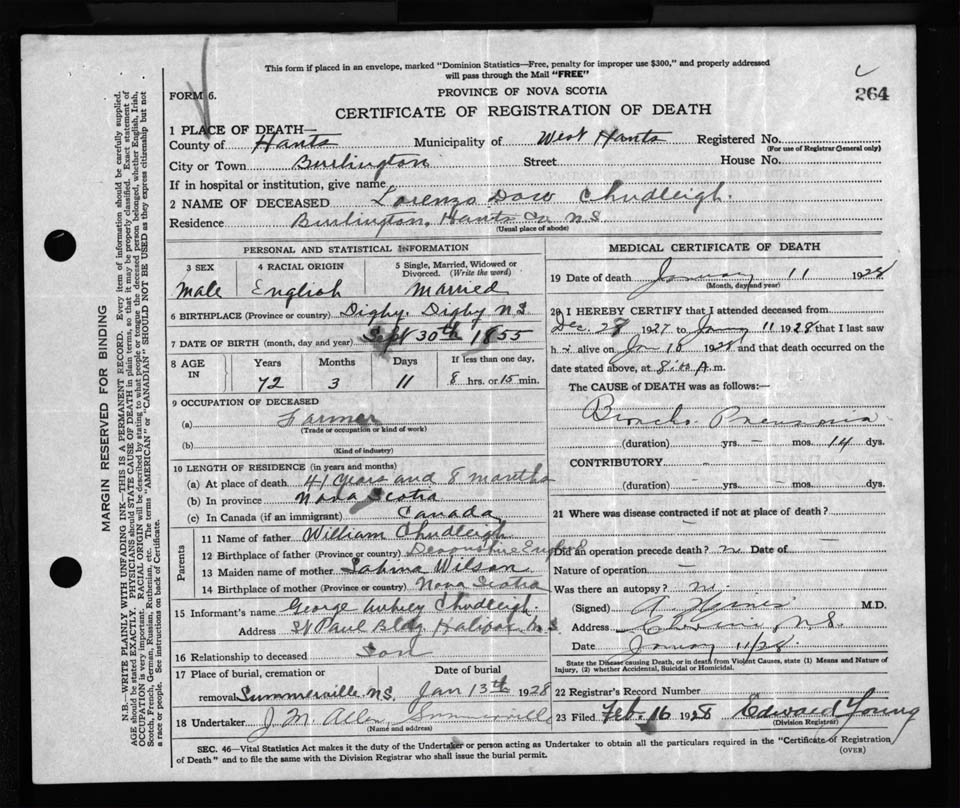 This form if placed in an envelope, marked "Dominion Statistics—Free, penalty for improper use $300," and properly addressed
will pass through the Mail "FREE"
FORM 6.
PROVINCE OF NOVA SCOTIA
264
CERTIFICATE OF REGISTRATION OF DEATH
1 PLACE OF DEATH—
County of Hants Municipality of West Hants Registered No.
(For use of Registrar General only)
City or Town Burlington Street House No.
If in hospital or institution, give name
2 NAME OF DECEASED Lorenzo Dow Chudleigh.
Residence Burlington, Hants Co N.S.
(Usual place of abode)
PERSONAL AND STATISTICAL INFORMATION
3 SEX 4 RACIAL ORIGIN 5 Single, Married, Widowed or
Divorced. (Write the word)
Male English Married
6 BIRTHPLACE (Province or country) Digby. Digby N.S
7 DATE OF BIRTH (month, day and year) Sept 30th 1855
8 AGE IN Years Months Days If less than one day,
72 3 11 8 hrs. or 15 min.
9 OCCUPATION OF DECEASED
(a) Farmer
(Trade or occupation or kind of work)
(b)
(Kind of industry)
10 LENGTH OF RESIDENCE (in years and months)
(a) At place of death 41 years and 8 months
(b) In province Nova Scotia
(c) In Canada (if an immigrant) Canada
Parents
11 Name of father William Chudleigh
12 Birthplace of father (Province or country) Devonshire England
13 Maiden name of mother Wilson
14 Birthplace of mother (Province or country) Nova Scotia
15 Informant's name George Aubrey Chudleigh.
Address St Paul Bldg Halifax N.S
16 Relationship to deceased Son
17 Place of burial, cremation or Date of burial
removal Summerville N.S. Jan 13th 1928
18 Undertaker J. M. Allen, Summerville
(Name and address)
MEDICAL CERTIFICATE OF DEATH
19 Date of death January 11 1928
(Month, day and year)
20 I HEREBY CERTIFY that I attended deceased from
Dec. 28 1927 to January 11 1928 that I last saw
h alive on Jan 10 1928 and that death occurred on the
date stated above, at 8: A.m.
The CAUSE of DEATH was as follows:
Broncho Pneumonia
(duration) yrs. – mos. 14 dys.
CONTRIBUTORY –
(duration) yrs. – mos. dys.
21 Where was disease contracted if not at place of death?
–
Did an operation precede death? no Date of –
Nature of operation –
Was there an autopsy? no.
(Signed) M.D.
Address N.S.
Date January 11/28
State the Disease causing Death, or in death from Violent Causes, state (1) Means and Nature of
Injury, (2) whether Accidental, Suicidal or Homicidal.
22 Registrar's Record Number
23 Filed Feb. 16 1928 Edward Young
(Division Registrar)
SEC. 46—Vital Statistics Act makes it the duty of the Undertaker or person acting as Undertaker to obtain all the particulars required in the "Certificate of Registration
of Death" and to file the same with the Division Registrar who shall issue the burial permit. (OVER)
MARGIN RESERVED FOR BINDING
N.B.—WRITE PLAINLY WITH UNFADING INK—THIS IS A PERMANENT RECORD. Every item of information should be carefully supplied.
AGE should be stated EXACTLY. PHYSICIANS should STATE CAUSE OF DEATH in plain terms, so that it may be properly classified. Exact statement of
OCCUPATION is very important. RACIAL ORIGIN will be described by stating to what people or tongue the deceased person belonged, whether English, Irish,
Scotch, French, German, Russian, Ruthenian, etc. The terms "AMERICAN" or "CANADIAN" SHOULD NOT BE USED as they express citizenship but not
a race or people. See instructions on back of Certificate.